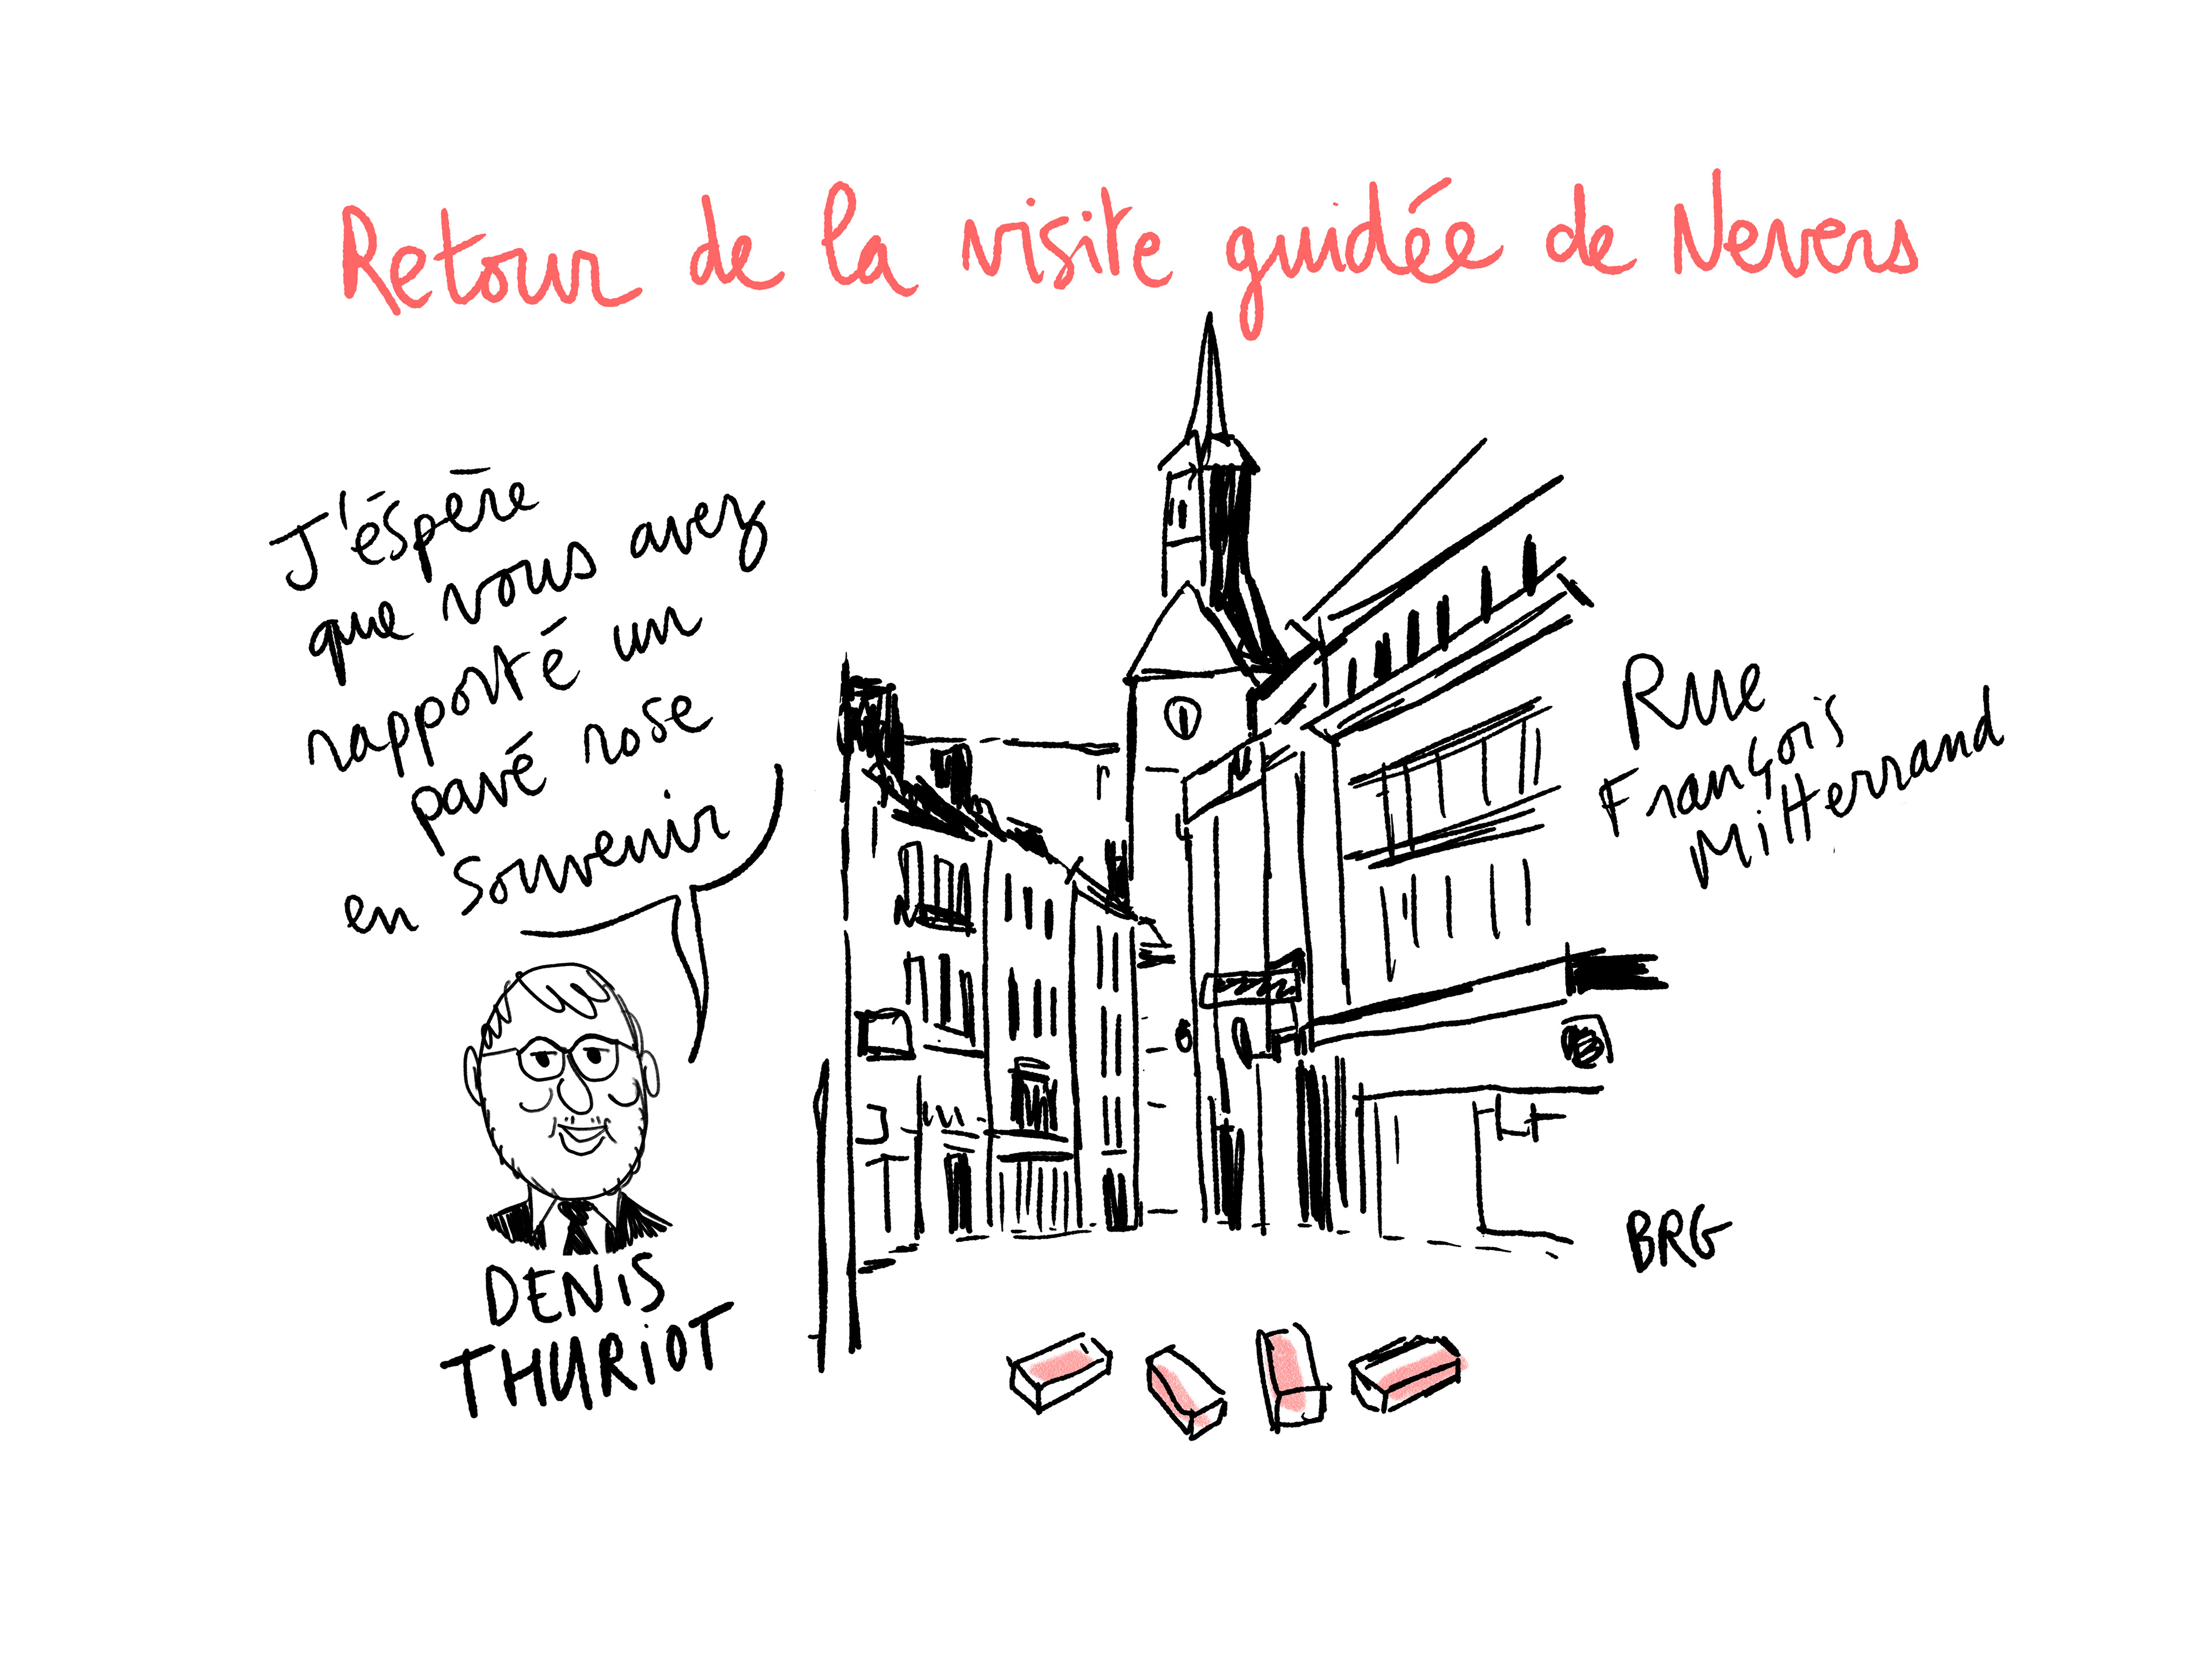 Retour de la visite guidée de Nevers
J'éspère
que vous avez
rapporté un
pavé rose
en souvenir
DENiS
THURiOT
Rue
François
Mitterrand
BRG